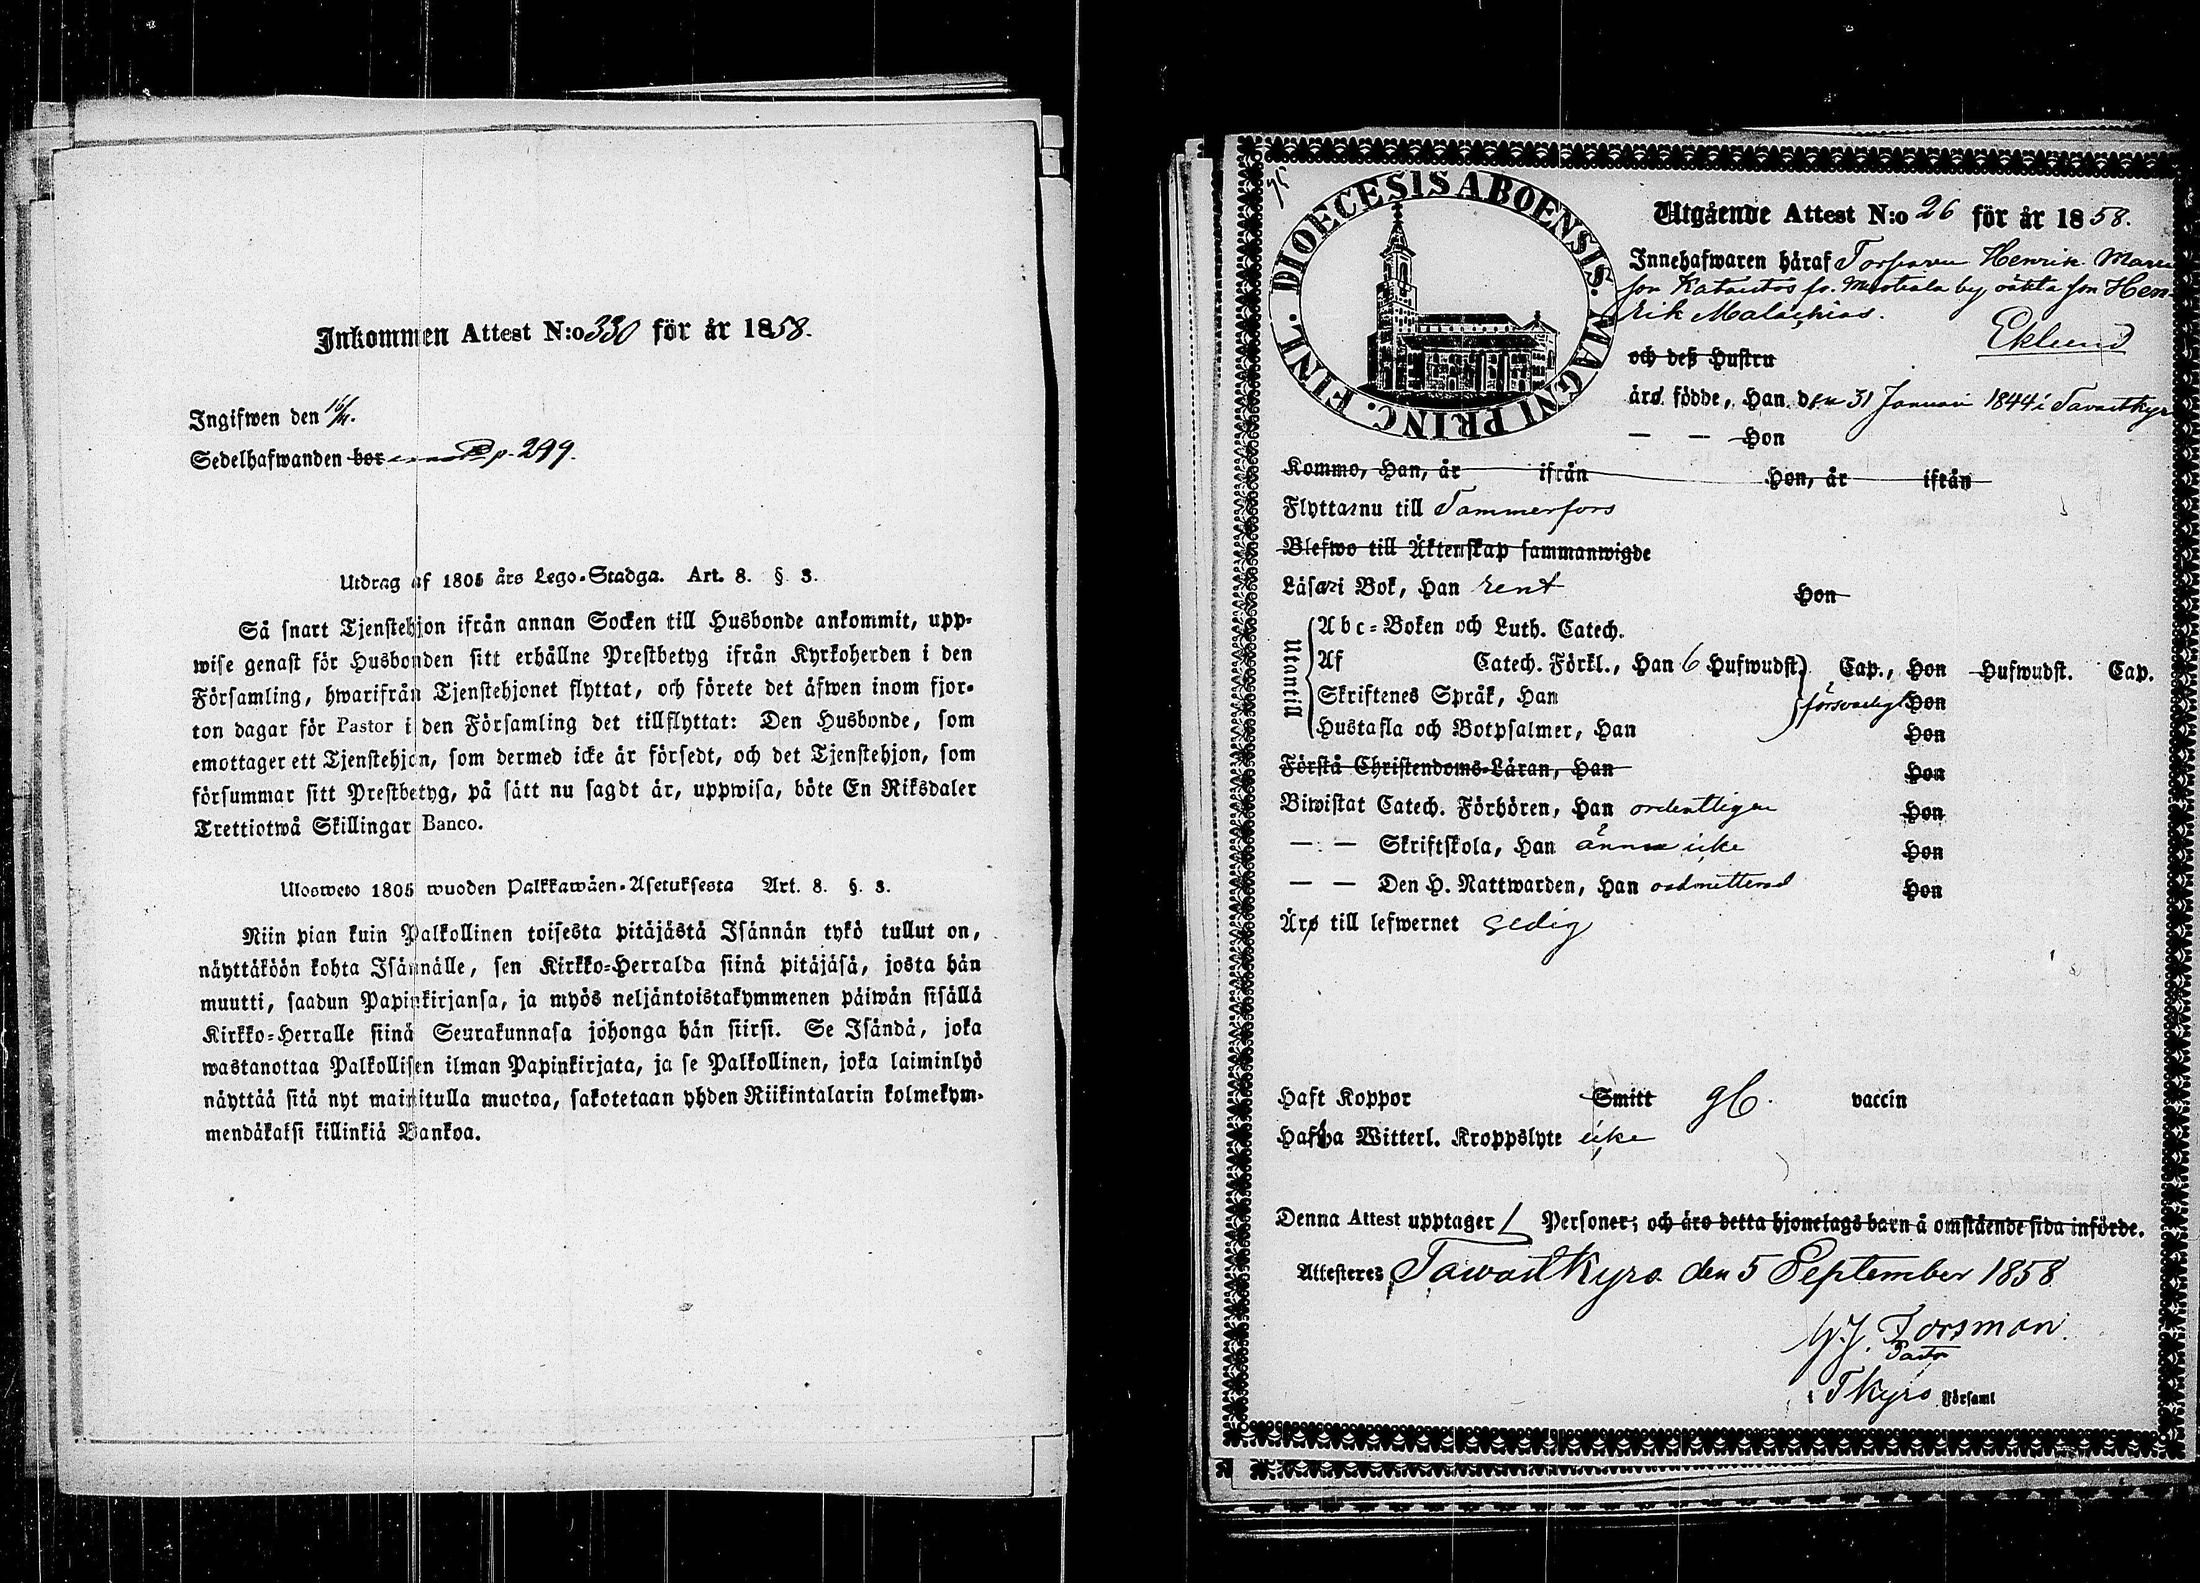 Inkommen Attest N:o 330 för år 1858.
Ingifwen den
Sedelhafwanden bor p. 299.
Utdrag af 1805 års Lego-Stadga. Art. 8. § 3.
Så snart Tjenstehjon ifrån annan Socken till Husbonde ankommit, upp-
wise genast för Husbonden sitt erhållne Prestbetyg ifrån Kyrkoherden i den
Församling, hwarifrån Tjenstehjonet flyttat, och förete det äfwen inom fjor-
ton dagar för Pastor i den Församling det tillflyttat: Den Husbonde, som
emottager ett Tjenstehjon, som dermed icke är försedt, och det Tjenstehjon, som
försummar sitt Prestbetyg, på sätt nu sagdt är, uppwisa, böte En Riksdaler
Trettiotwå Skillingar Banco.
Ulosweto 1805 wuoden Palkkawäen-Asetuksesta Art. 8. §. 3.
Niin pian kuin Palkollinen toisesta pitäjästä Isännän tykö tullut on,
näyttäköön kohta Isännälle, sen Kirkko-Herralda siinä pitäjäsä, josta hän
muutti, saadun Papinkirjansa, ja myös neljäntoistakymmenen päiwän sisällä
Kirkko-Herralle siinä Seurakunnasa johonga hän siirsi. Se Isändä, joka
wastanottaa Palkollisen ilman Papinkirjata, ja se Palkollinen, joka laiminlyö
näyttää sitä nyt mainitulla muotoa, sakotetaan yhden Riikintalarin kolmekym-
mendäkaksi killinkiä Bankoa.
DIOECESIS ABOENSIS. MAGNI PRINC. FINL.
Utgående Attest N:o 26 för år 1858.
Innehafwaren häraf Torparen Henrik
son by äkta son Hen-
rik Malachias.
Eklund
och deß Hustru
äro födde, Han den 31 Januari 1844 i Tavastkyro
— — Hon
Kommo, Han, år ifrån Hon, år ifrån
Flytta nu till Tammerfors
Blefwo till Äktenskap sammanwigde
Läsa i Bok, Han rent Hon
Utantill
Abc-Boken och Luth. Catech.
Af Catech. Förkl., Han 6 Hufwudst. Cap., Hon Hufwudst. Cap.
Skriftenes Språk, Han försvarligt Hon
Hustafla och Botpsalmer, Han Hon
Förstå Christendoms-Läran, Han Hon
Biwistat Catech. Förhören, Han ordentligen Hon
— — Skriftskola, Han ännu icke Hon
— — Den H. Nattwarden, Han oadmitterad Hon
Äro till lefwernet sedig
Haft Koppor Smitt vaccin
Hafwa Witterl. Kroppslyte icke
Denna Attest upptager 1 Personer; och äro detta hjonelags barn å omstående sida införde.
Attesteres Tawastkyro den 5 September 1858
Forsman
Pastor
i Tkyro Församl